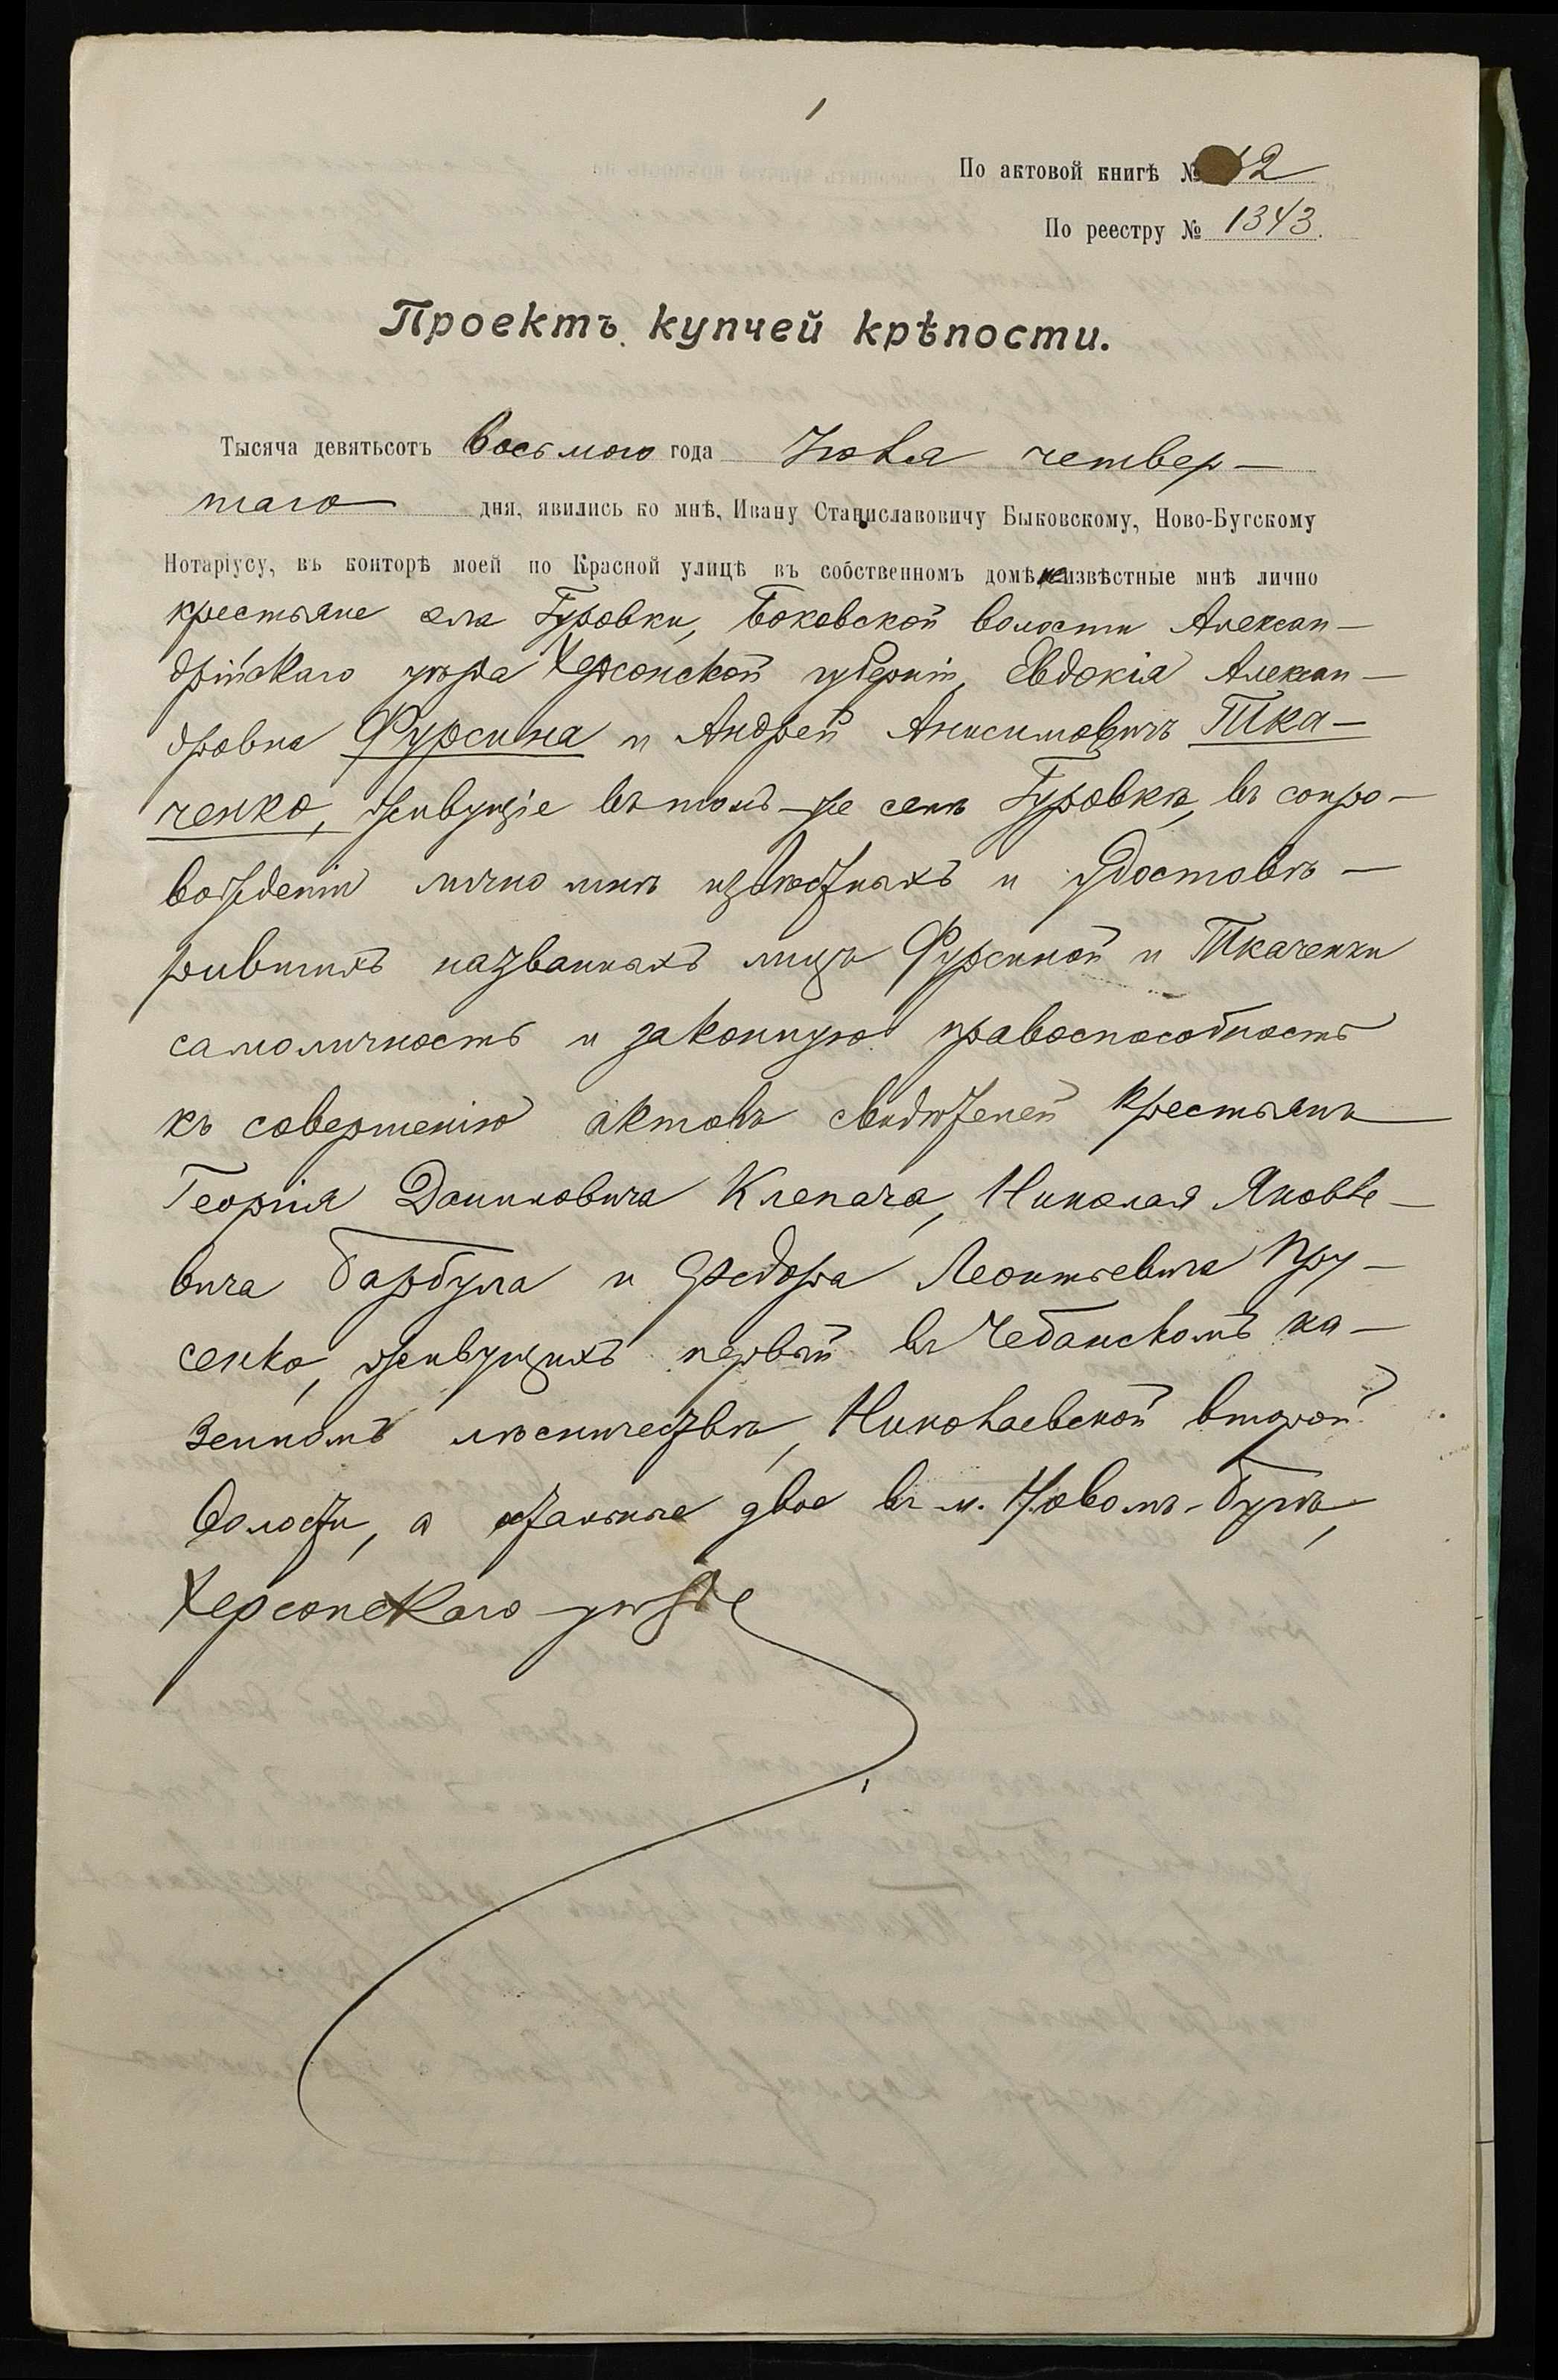 1
По актовой книгѣ № 2
По реестру № 1343.
Проектъ купчей крѣпости.
Тысяча девятьсотъ восьмого года Іюля четвер-
таго дня, явились ко мнѣ, Ивану Станиславовичу Быковскому, Ново-Бугскому
Нотаріусу, въ конторѣ моей по Красной улицѣ въ собственномъ домѣ неизвѣстные мнѣ лично
крестьяне села Гуровки, Боковской волости Алексан-
дрійскаго уѣзда Херсонской губерніи, Евдокія Алексан-
дровна Фурсина и Андрей Анисимовичъ Тка-
ченко, живущіе въ томъ-же селѣ Гуровкѣ, въ сопро-
вожденіи лично мнѣ извѣстныхъ и удостовѣ-
рившихъ названныхъ лицъ Фурсиной и Ткаченки
самоличность и законную правоспособность
къ совершенію актовъ свидѣтелей крестьянъ
Георгія Даниловича Клепача, Николая Яковле-
вича Барбула и Федора Леонтьевича Пру-
сенко, живущихъ первый въ Чебанскомъ ка-
зенномъ лѣсничествѣ, Николаевской второй
волости, а остальные двое въ м. Новомъ-Бугѣ,
Херсонскаго уѣзда